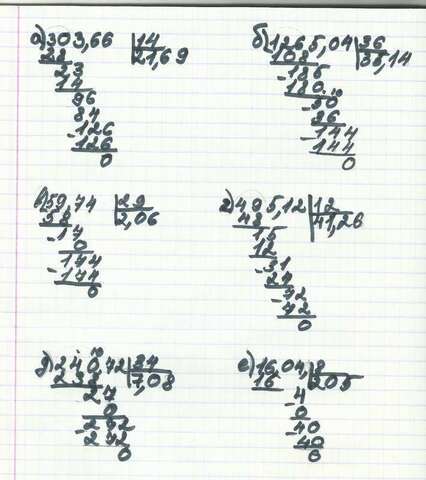 а) 303,66 | 14
28 21,69
23
14
96
84
-126
126
0
б) 1265,04 | 36
108 35,14
-185
180
-50
36
-144
144
0
в) 59,74 | 29
58 2,06
-17
0
174
-174
0
г) 495,12 | 12
48 41,26
15
12
-31
24
-72
72
0
д) 240,72 | 34
238 7,08
27
0
272
-272
0
е) 1604, | 8
16 205
4
-0
-40
40
0